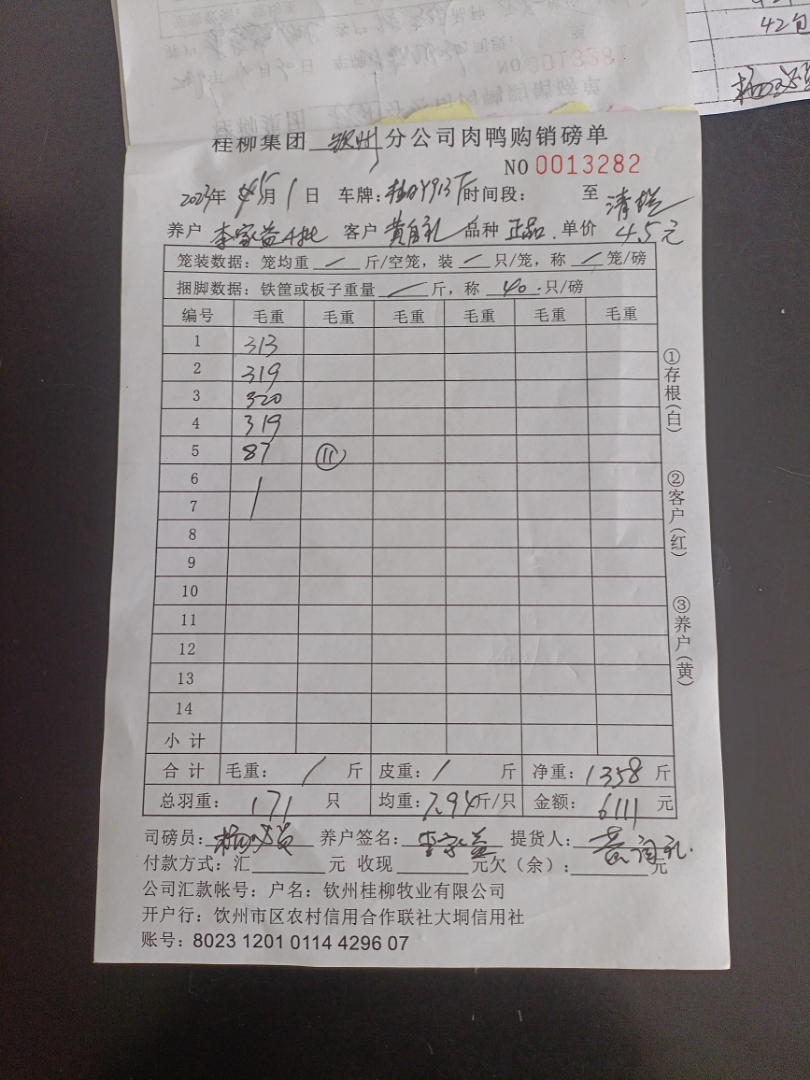 42包
NO 0013281
桂柳集团 钦州 分公司肉鸭购销磅单
NO 0013282
2023年 5月 1日 车牌: 时间段: 至 清栏
养户 李家益 4批 客户 黄自礼 品种 正品. 单价 4.5元
笼装数据: 笼均重 / 斤/空笼, 装 / 只/笼, 称 / 笼/磅
捆脚数据: 铁筐或板子重量 / 斤, 称 40 只/磅
编号 毛重 毛重 毛重 毛重 毛重 毛重
1 313
2 319
3 320
4 319
5 87 ⑪
6 /
7
8
9
10
11
12
13
14
小计
合计 毛重: / 斤 皮重: / 斤 净重: 1358 斤
总羽重: 171 只 均重: 7.94斤/只 金额: 6111 元
司磅员: 养户签名: 李家益 提货人:
付款方式: 汇 元 收现 元欠(余): 元
公司汇款帐号: 户名: 钦州桂柳牧业有限公司
开户行: 钦州市区农村信用合作联社大垌信用社
账号: 8023 1201 0114 4296 07
①存根(白)
②客户(红)
③养户(黄)